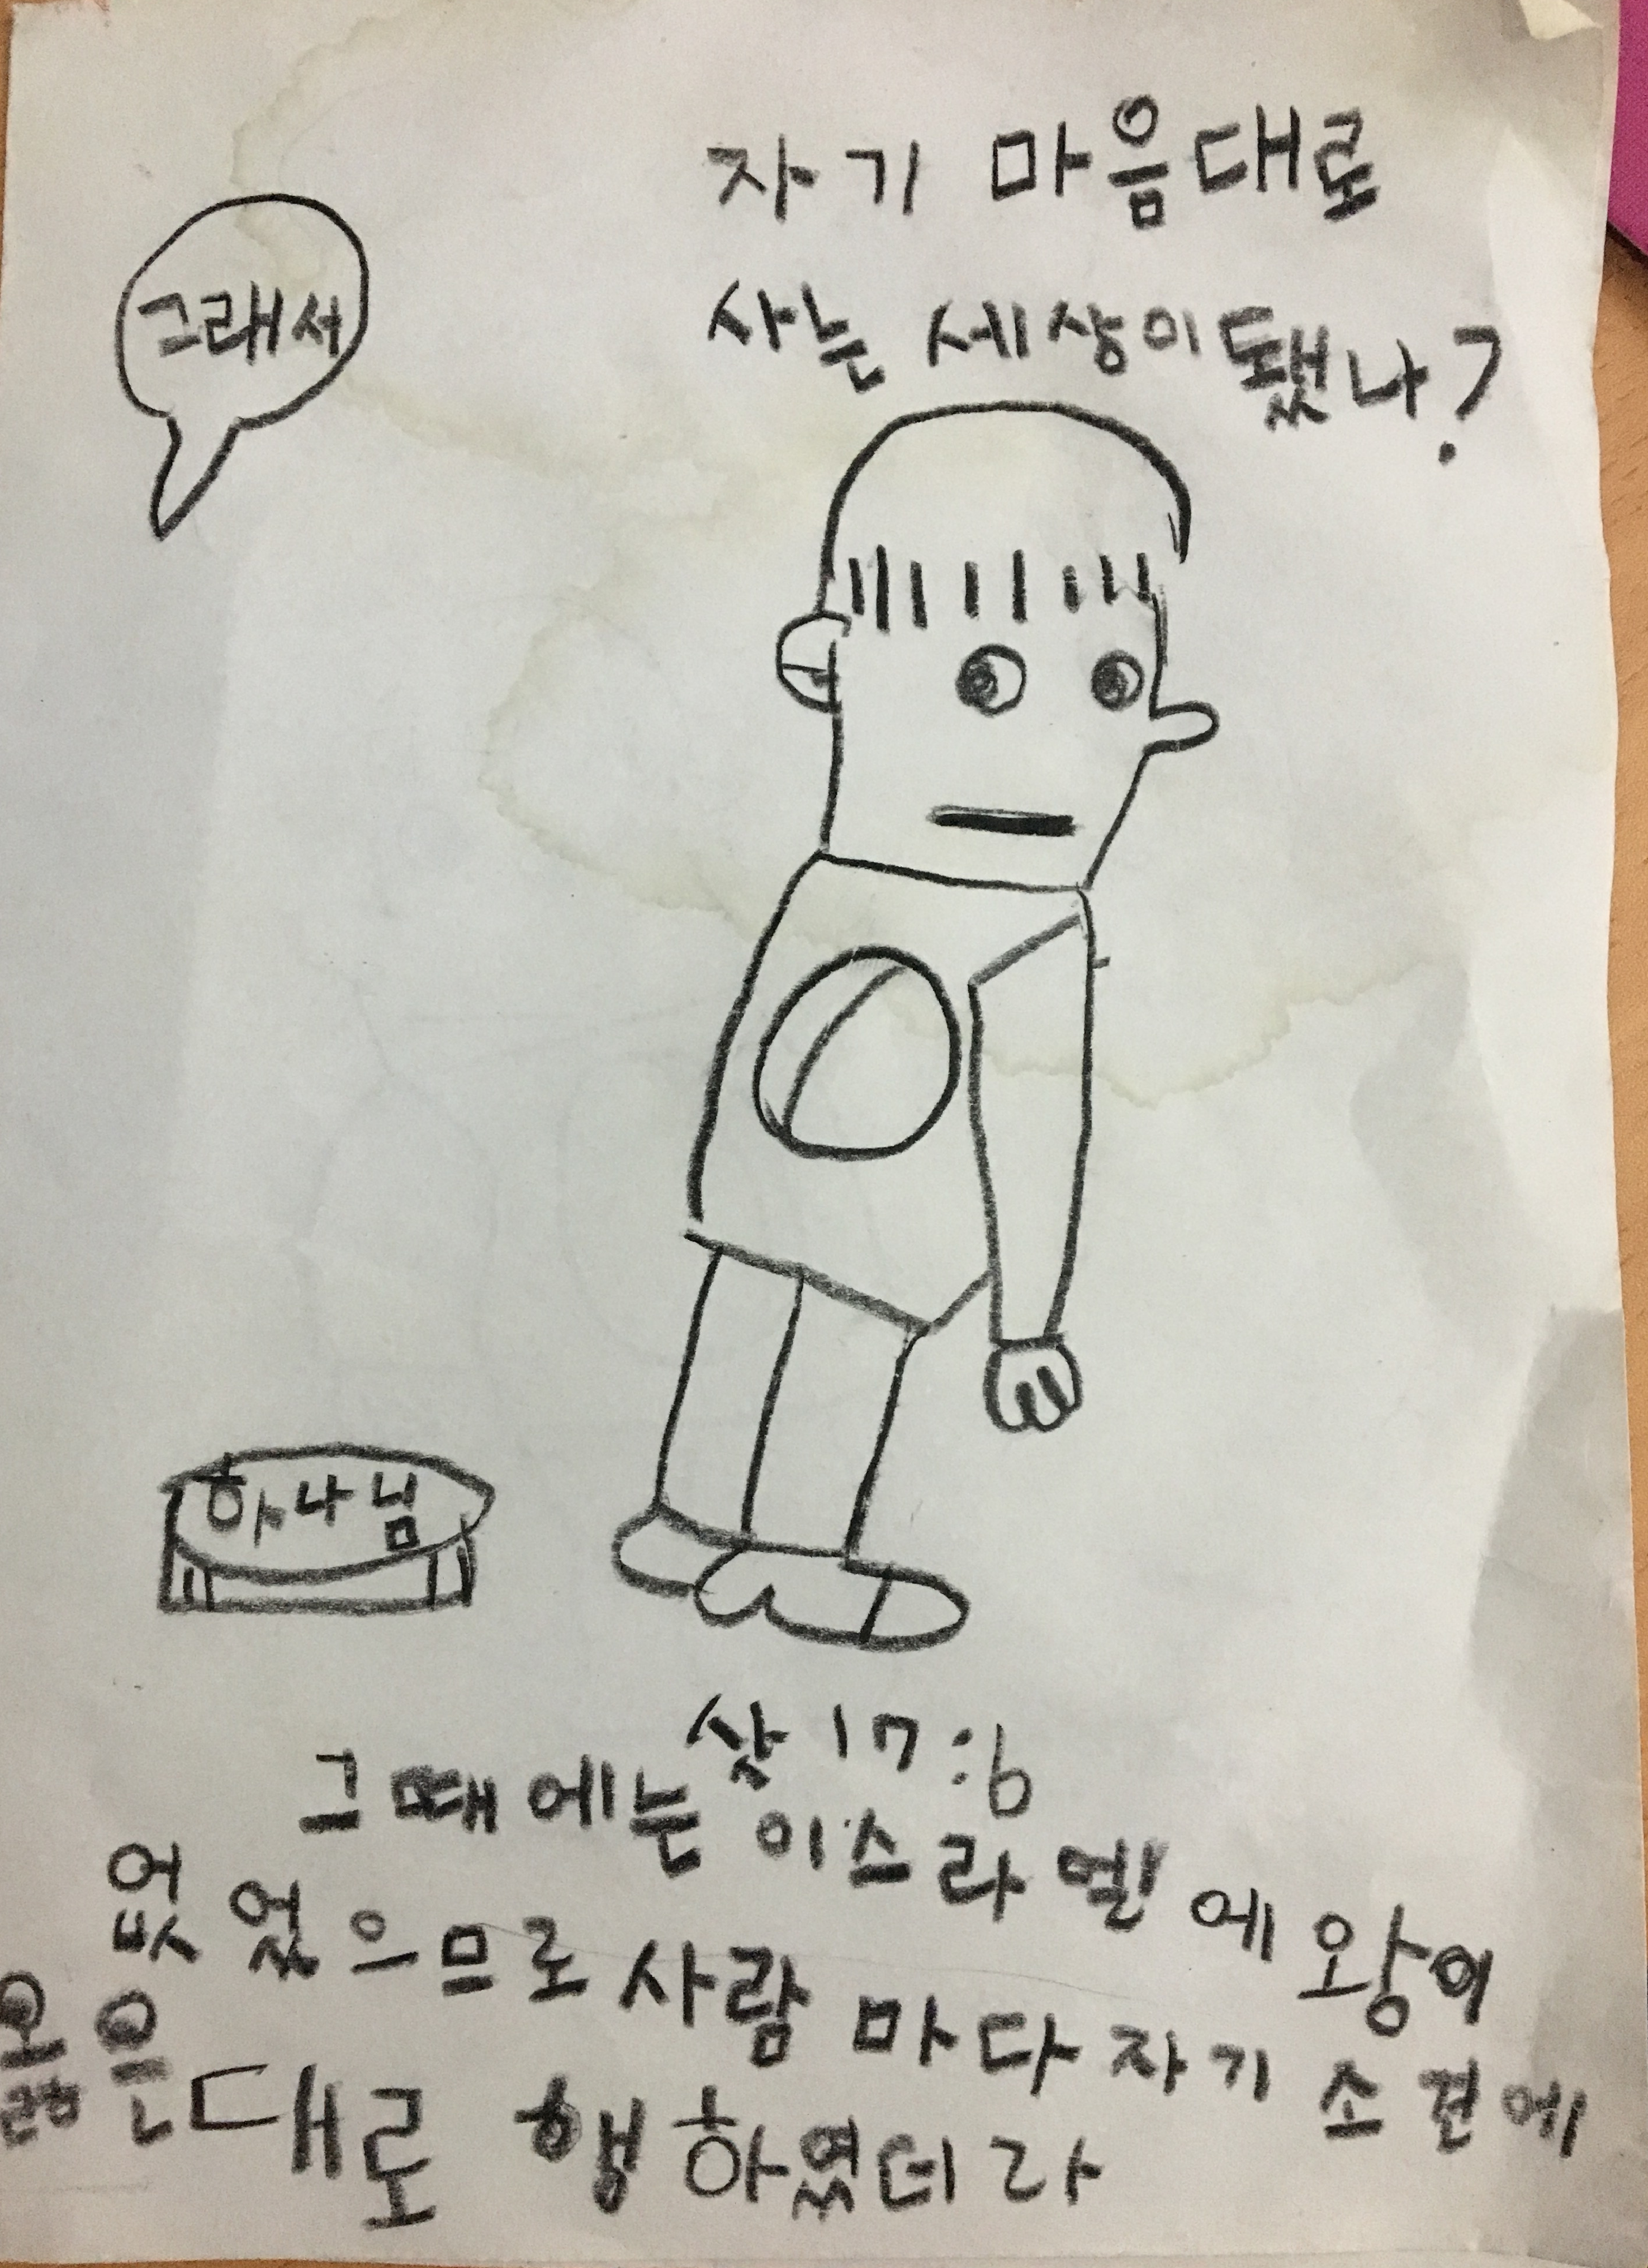 자기 마음대로
사는 세상이 됐나?
그래서
하나님
삿 17:6
그때에는 이스라엘에 왕이
없었으므로 사람마다 자기 소견에
옳은대로 행하였더라